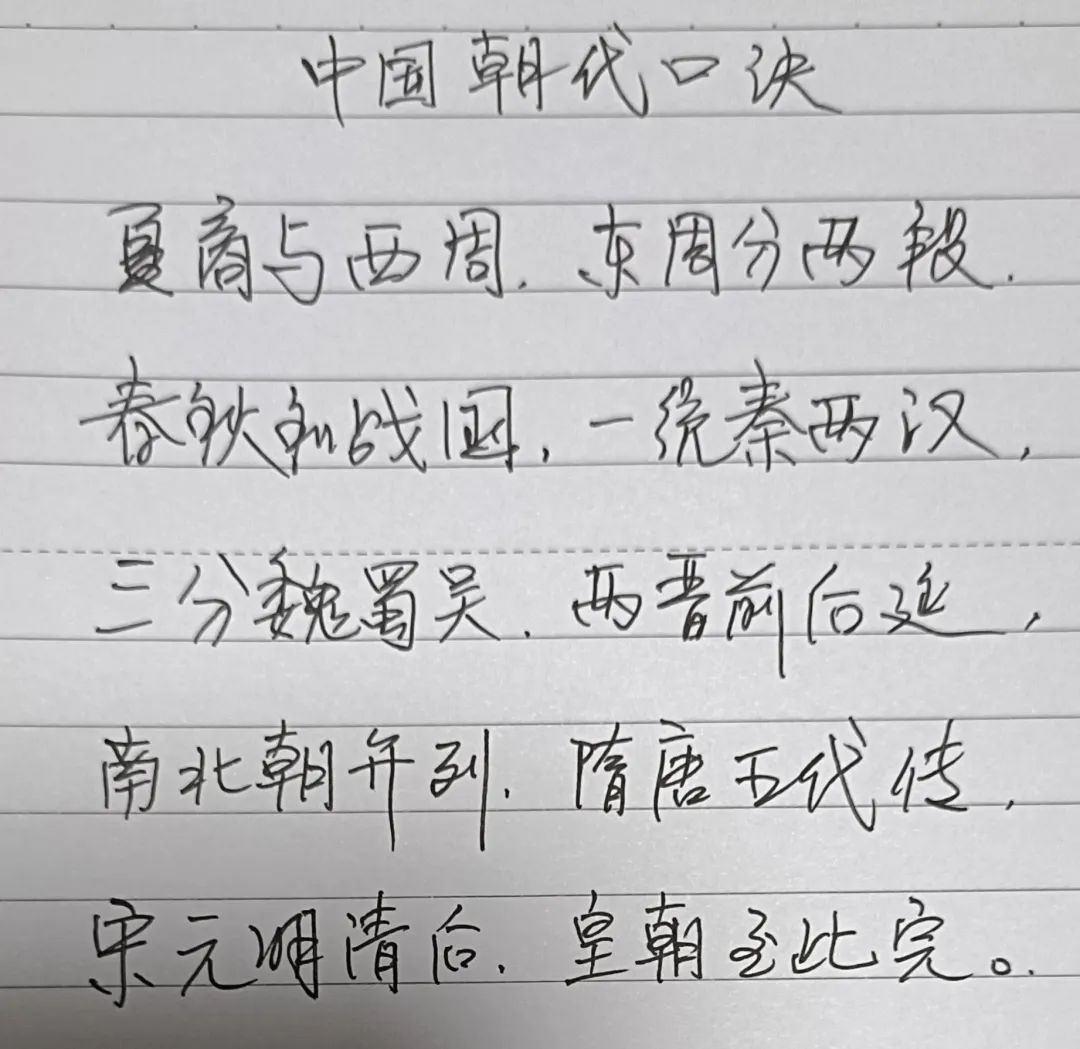 中国朝代口诀
夏商与西周，东周分两段，
春秋和战国，一统秦两汉，
三分魏蜀吴，两晋前后延，
南北朝并列，隋唐五代传，
宋元明清后，皇朝至此完。